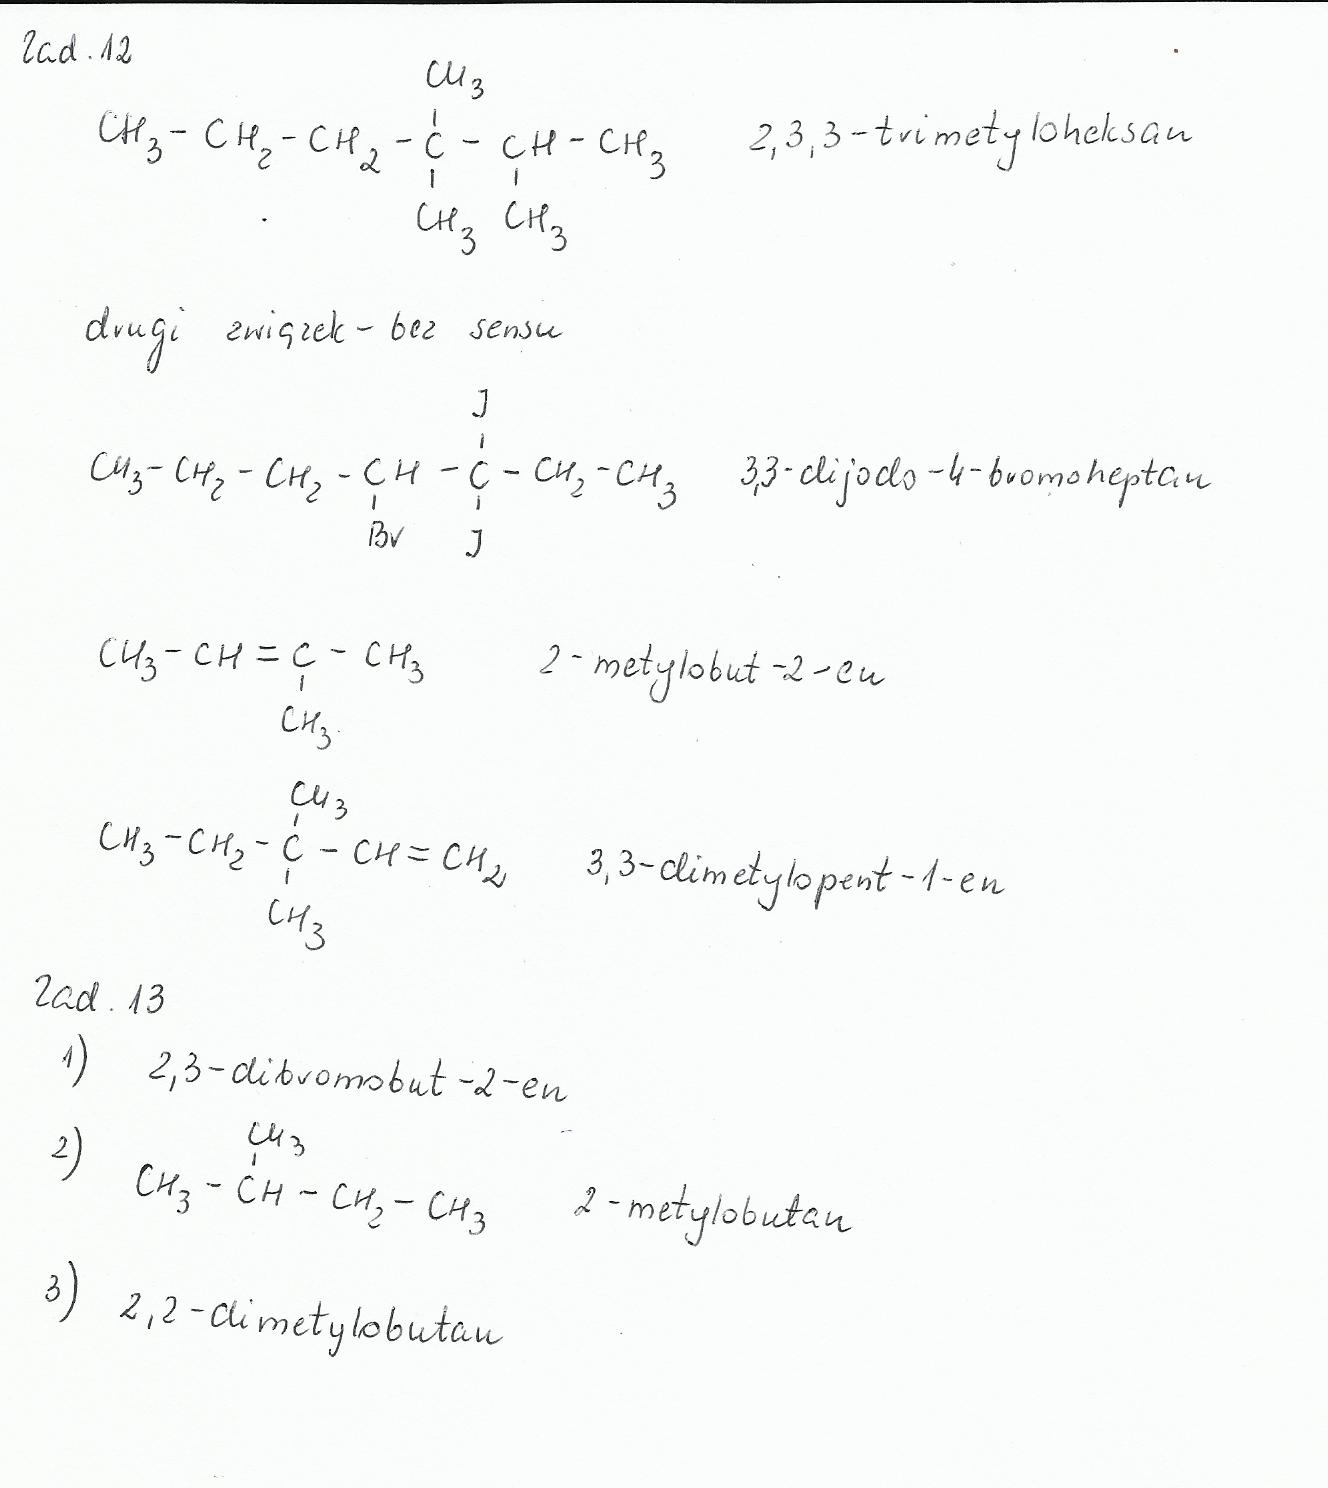 Zad. 12
CH3
CH3 - CH2 - CH2 - C - CH - CH3 2,3,3-trimetyloheksan
CH3 CH3
drugi związek - bez sensu
J
CH3 - CH2 - CH2 - CH - C - CH2 - CH3 3,3-dijodo-4-bromoheptan
Br J
CH3 - CH = C - CH3 2-metylobut-2-en
CH3
CH3
CH3 - CH2 - C - CH = CH2 3,3-dimetylopent-1-en
CH3
Zad. 13
1) 2,3-dibromobut-2-en
CH3
2) CH3 - CH - CH2 - CH3 2-metylobutan
3) 2,2-dimetylobutan